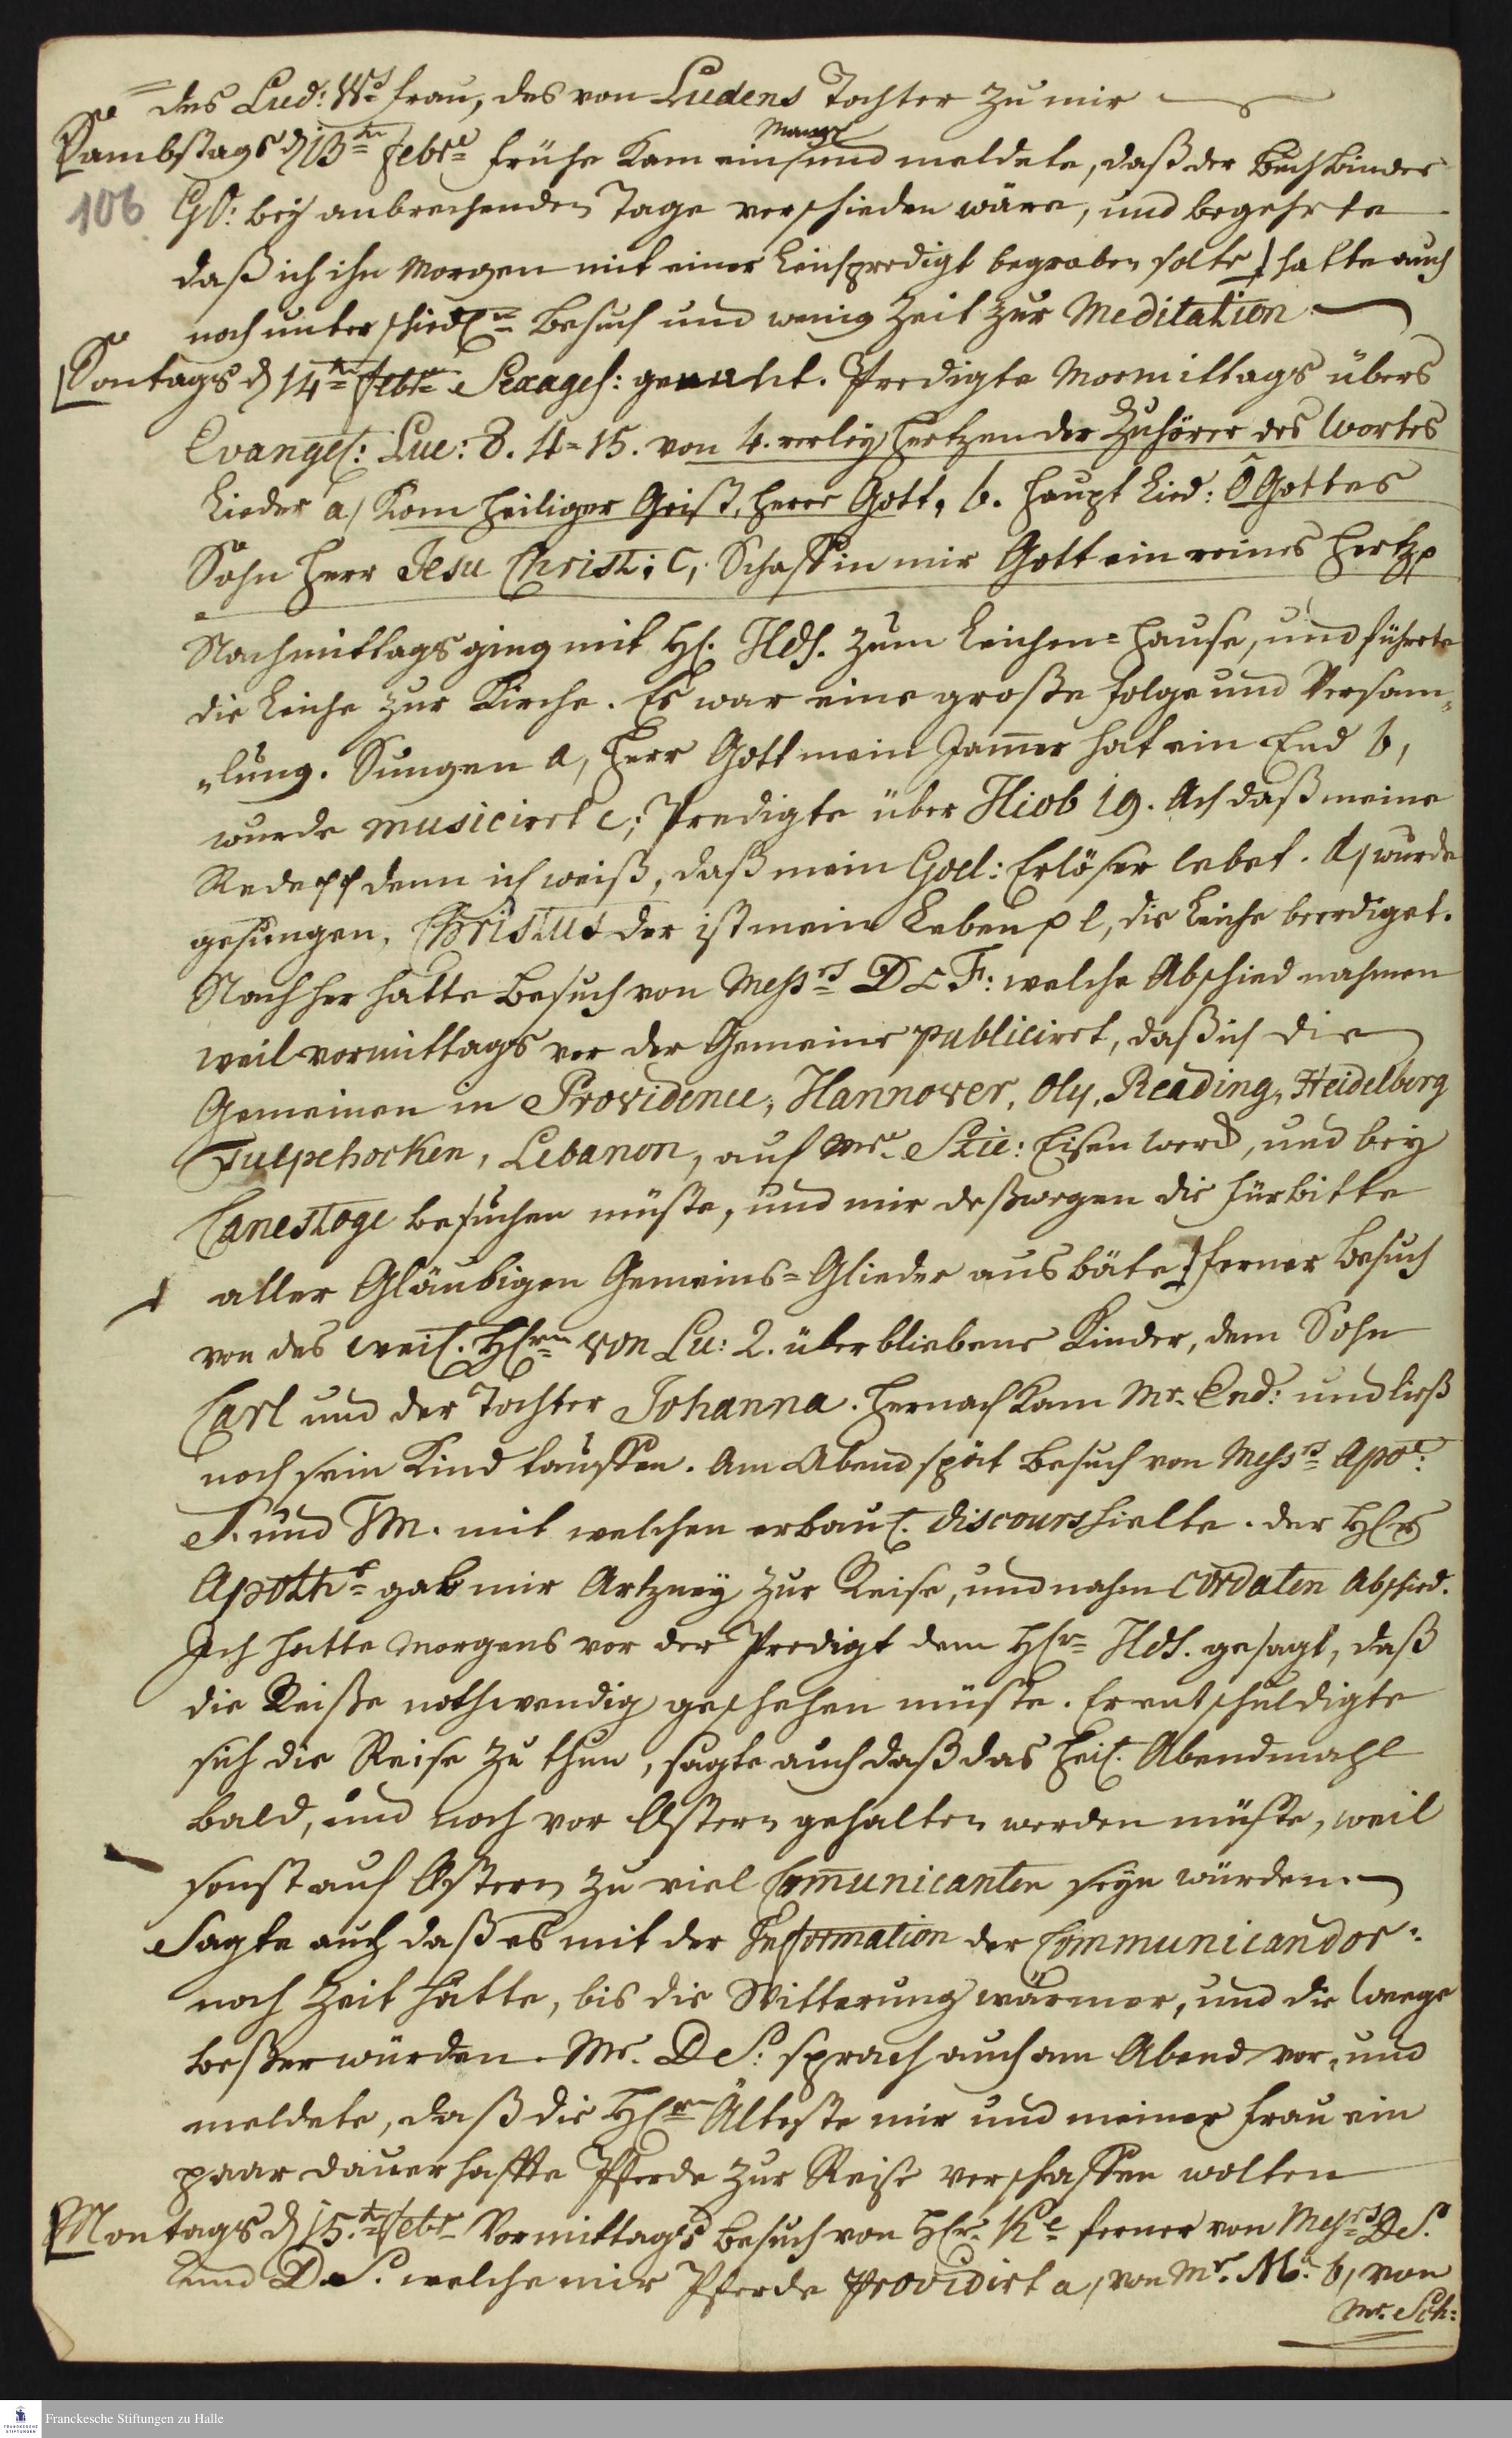 des Lud: Ws frau, des von Ludens Tochter zu mir
Sambstags d 13tn Febr frühe kam ein Mann und meldete, daß der Buchbinder
106
GO: bey anbrechenden Tage verschieden wäre, und begehrte
daß ich ihn Morgen mit einer Leichpredigt begraben solte, hatte auch
noch unterschiedln Besuch und wenig Zeit zur Meditation
Sontags d 14tn Febr Sexages: genant. Predigte Vormittags übers
Evangel: Luc: 8. 4-15. von 4. rerley Hertzen der Zuhörer des Wortes
Lieder a) Kom Heiliger Geist, Herre Gott, b. Haupt Lied: O Gottes
Sohn Herr Jesu Christ: c, Schaff in mir Gott ein reines Hertz p
Nachmittags ging mit H. Hds. zum Leichen-Hause, und führete
die Leiche zur Kirche. Es war eine große Folge und Versam-
lung. Sungen a, Herr Gott mein Jamer hat ein End b,
wurde musiciret c; Predigte über Hiob 19. Ach daß meine
Rede pp denn ich weiß, daß mein Goel: Erlöser lebet. d, wurde
gesungen, Christus der ist mein Leben p e, die Leiche beerdiget.
Nachher hatte Besuch von Messrs D & F: welche Abschied nahmen
weil vormittags vor der Gemeine publiciret, daß ich die
Gemeinen in Providence, Hannover, Oly, Reading, Heidelberg
Tulpehocken, Lebanon, auf Mr Stie: Eisen Werck, und bey
Canestoge besuchen müste, und mir deßwegen die Fürbitte
aller Gläubigen Gemeins-Glieder ausbäte. ferner Besuch
von des weil. Hrn von Lu: 2. überbliebene Kinder, dem Sohn
Carl und der Tochter Johanna. Hernach kam Mr. End: und ließ
noch sein Kind tauffen. Am Abend spät Besuch von Messrs Apo:
S. und M. mit welchen erbaul. discours hielte. der Hr
Apothr gab mir Artzney zur Reise, und nahm cordaten Abschied.
Ich hatte Morgens vor der Predigt dem Hrn Hds. gesagt, daß
die Reise nothwendig geschehen müste. Er entschuldigte
sich die Reise zu thun, sagte auch daß das Heil. Abendmahl
bald, und noch vor Ostern gehalten werden müste, weil
sonst auf Ostern zu viel Comunicanten seyn würden.
Sagte auch daß es mit der Information der Communicandor:
noch Zeit hätte, bis die Witterung wärmer, und die Weege
besser würden. Mr. D S: sprach auch am Abend vor, und
meldete, daß die Hrn Älteste mir und meiner Frau ein
paar dauerhaffte Pferde zur Reise verschaffen wolten
Montags d 15t Febr Vormittags Besuch von Hr. K ferner von Messrs D S.
und D. S. welche mir Pferde providirt a, von Mr. M. b, von
Mr. Sch:
Franckesche Stiftungen zu Halle